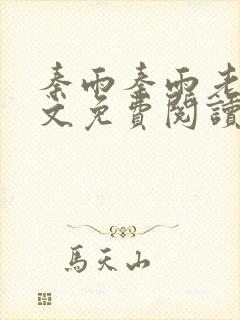 秦雨秦雨老
文免費閱讀
馬天山